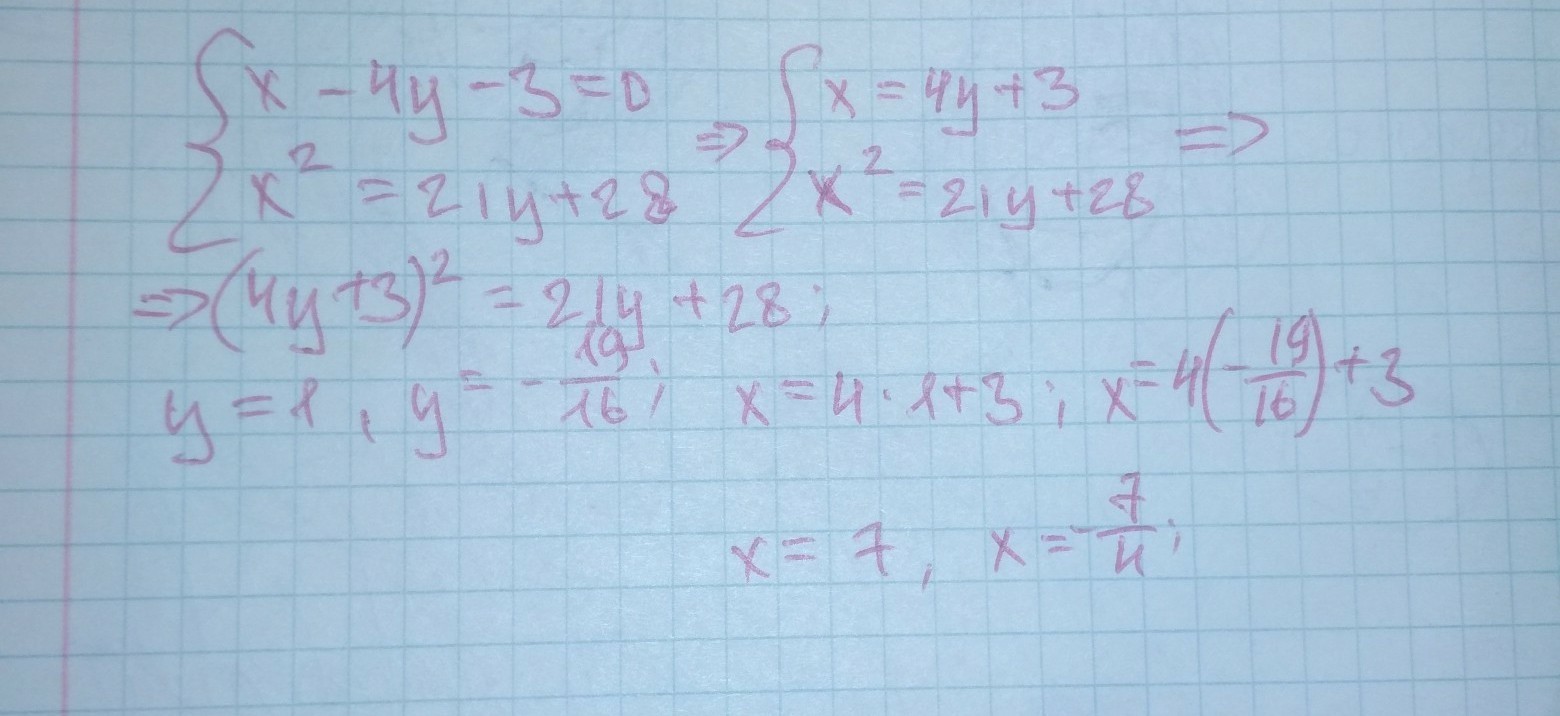 {x - 4y - 3 = 0 => {x = 4y + 3 =>
{x² = 21y + 28 {x² = 21y + 28
=> (4y + 3)² = 21y + 28;
y = 1, y = -19/16; x = 4 · 1 + 3; x = 4(-19/16) + 3
x = 7, x = -7/4;